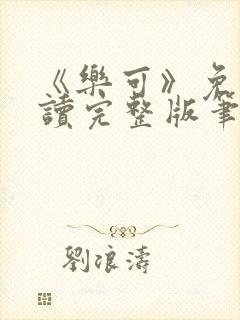 《樂可》免
讀完整版筆
劉浪濤